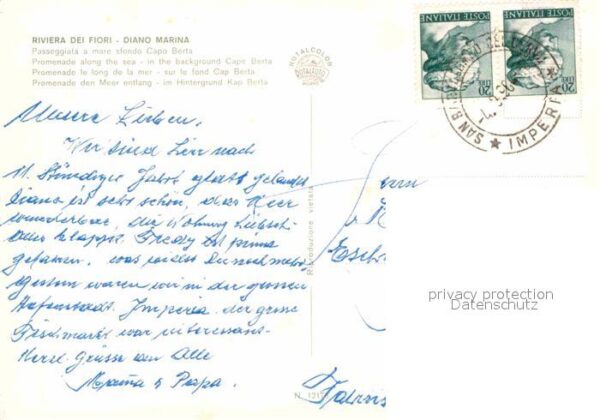 RIVIERA DEI FIORI - DIANO MARINA
Passeggiata a mare sfondo Capo Berta
Promenade along the sea - in the background Cape Berta
Promenade le long de la mer - sur le fond Cap Berta
Promenade den Meer entlang - im Hintergrund Kap Berta
ROTALCOLOR
ROTALFOTO
POSTE ITALIANE
LIRE 20
POSTE ITALIANE
LIRE 20
IMPERIA
Unsere Lieben,
Wir sind hier nach
11 Stündiger Fahrt glatt gelandet
Diano ist sehr schön, das Meer
wunderbar, die Wohnung hübsch
alles klappt. Freddy ist prima
gefahren, was
Gestern waren wir in der grossen
Hafenstadt Imperia der grosse
Fischmarkt war interessant.
Herzl. Grüsse an Alle
Mama & Papa.
Riproduzione vietata
privacy protection
Datenschutz